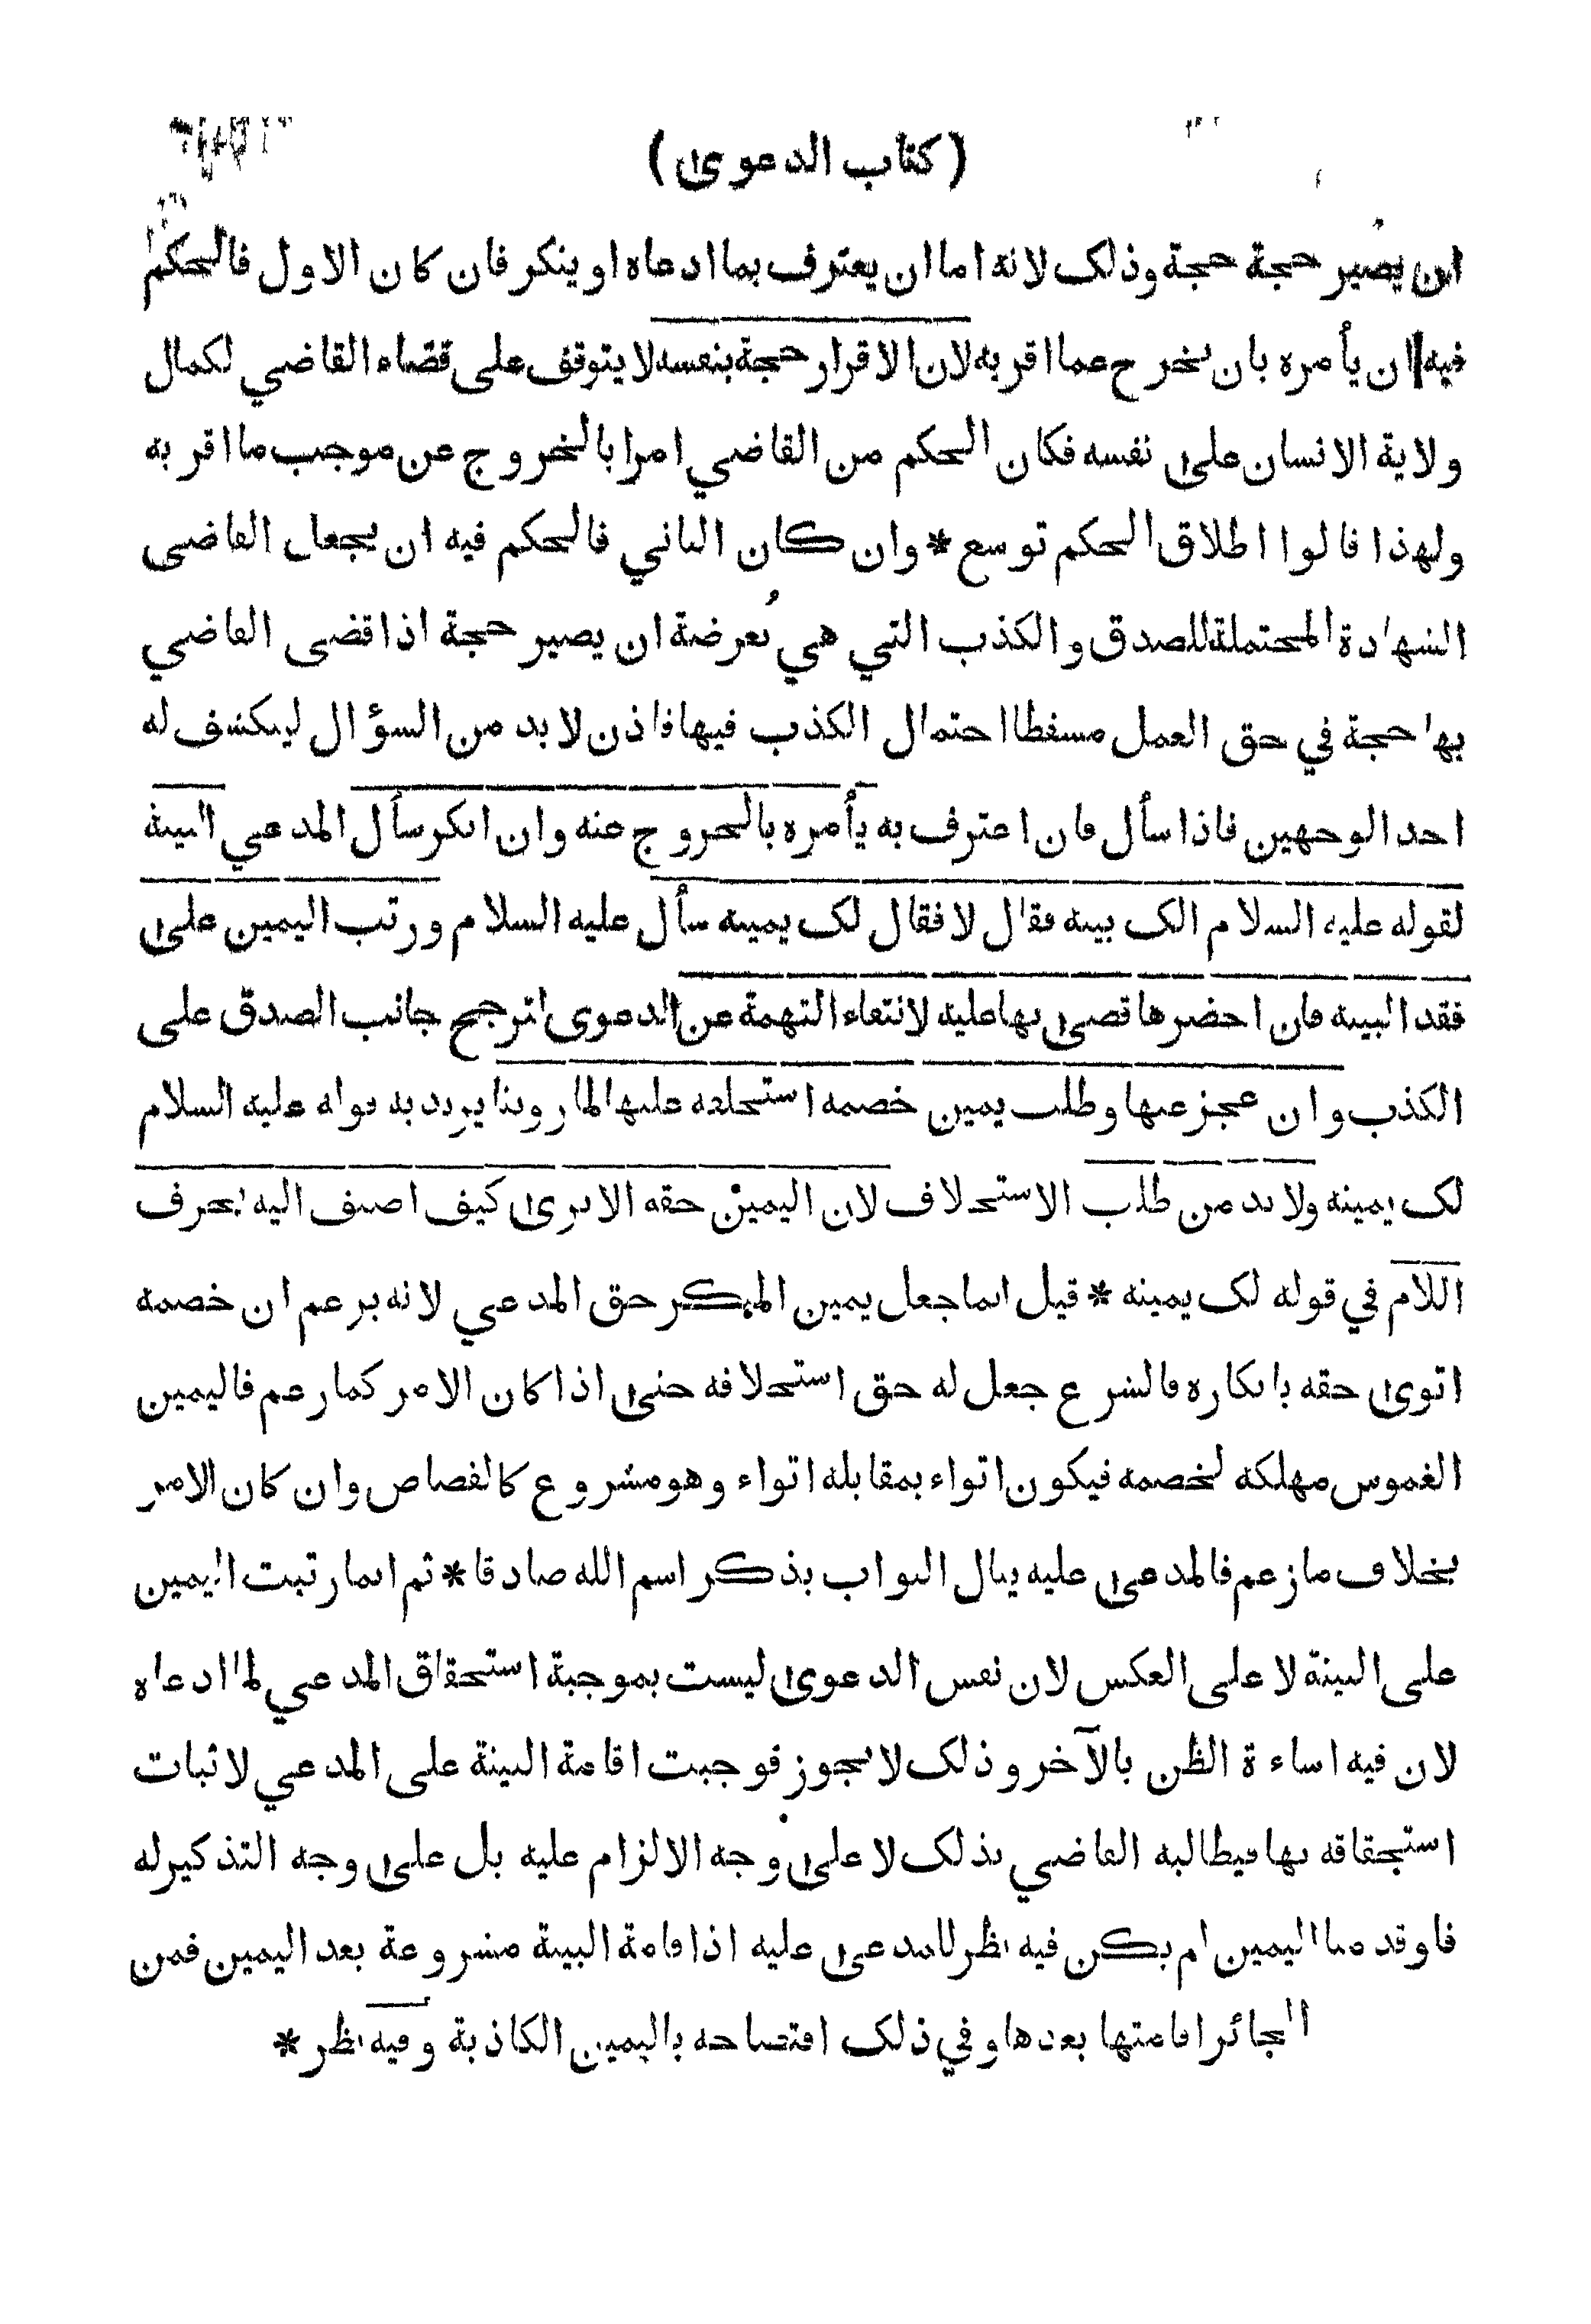 ( كتاب الدعوى )
ان يصير حجة حجة وذلك لانه اما ان يعترف بما ادعاه او ينكر فان كان الاول فالحكم
فيه ان يأمره بان يخرج عما اقر به لان الاقرار حجة بنفسه لا يتوقف على قضاء القاضي لكمال
ولاية الانسان على نفسه فكان الحكم من القاضي امرا بالخروج عن موجب ما اقر به
ولهذا قالوا اطلاق الحكم توسع * وان كان الثاني فالحكم فيه ان يجعل القاضي
الشهادة المحتملة للصدق والكذب التي هي بعرضة ان يصير حجة اذا قضى القاضي
بها حجة في حق العمل مسقطا احتمال الكذب فيها فاذن لا بد من السؤال لينكشف له
احد الوجهين فاذا سأل فان اعترف به يأمره بالخروج عنه وان انكر سأل المدعي البينة
لقوله عليه السلام الك بينة فقال لا فقال لك يمينه سأل عليه السلام ورتب اليمين على
فقد البينة فان احضرها قضى بها عليه لانتفاء التهمة عن الدعوى لترجيح جانب الصدق على
الكذب وان عجز عنها وطلب يمين خصمه استحلفه عليها لما روينا يريد به قوله عليه السلام
لك يمينه ولا بد من طلب الاستحلاف لان اليمين حقه الا يرى كيف اضيف اليه بحرف
اللام في قوله لك يمينه * قيل انما جعل يمين المنكر حق المدعي لانه يزعم ان خصمه
اتوى حقه بانكاره فالشرع جعل له حق استحلافه حتى اذا كان الامر كما زعم فاليمين
الغموس مهلكة لخصمه فيكون اتواء بمقابلة اتواء وهو مشروع كالقصاص وان كان الامر
بخلاف ما زعم فالمدعى عليه ينال الثواب بذكر اسم الله صادقا * ثم انما رتبت اليمين
على البينة لا على العكس لان نفس الدعوى ليست بموجبة استحقاق المدعي لما ادعاه
لان فيه اساءة الظن بالآخر وذلك لا يجوز فوجبت اقامة البينة على المدعي لاثبات
استحقاقه بها فيطالبه القاضي بذلك لا على وجه الالزام عليه بل على وجه التذكير له
فلو قدمنا اليمين لم يكن فيه نظر للمدعى عليه اذ اقامة البينة مشروعة بعد اليمين فمن
الجائز اقامتها بعدها وفي ذلك افتضاحه باليمين الكاذبة وفيه نظر *